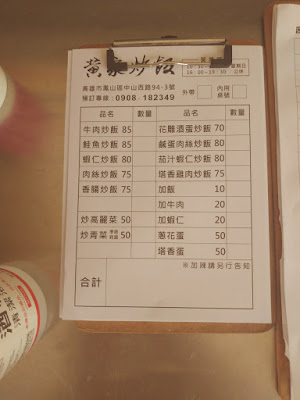 黃家炒飯
高雄市鳳山區中山西路94-3號
預訂專線:0908-182349
外帶 內用
桌號
品名 數量 品名 數量
牛肉炒飯 85 花雕酒蛋炒飯 70
鮭魚炒飯 85 鹹蛋肉絲炒飯 80
蝦仁炒飯 80 茄汁蝦仁炒飯 80
肉絲炒飯 75 塔香雞肉炒飯 75
香腸炒飯 75 加飯 10
加牛肉 20
炒高麗菜 50 加蝦仁 20
炒青菜 50 蔥花蛋 50
塔香蛋 50
※加辣請另行告知
合計